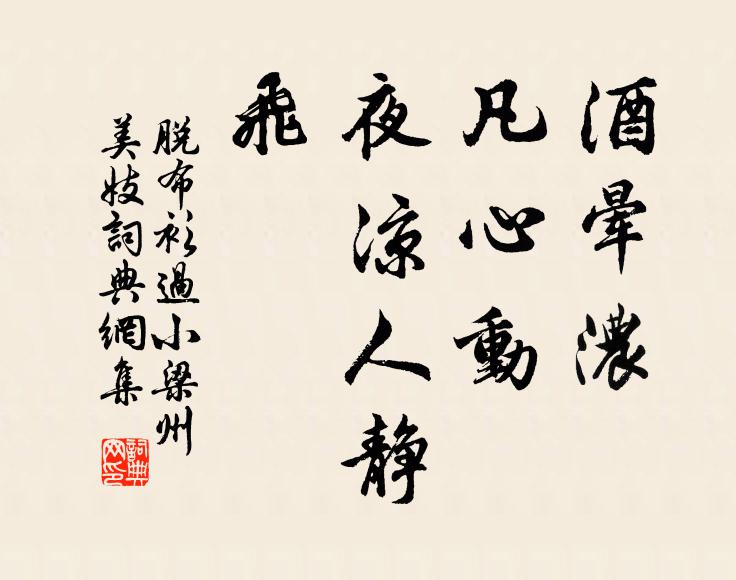 酒暈濃
凡心動
夜涼人靜
飛
脱布衫過小梁州
美妓詞典網集
詞典網印